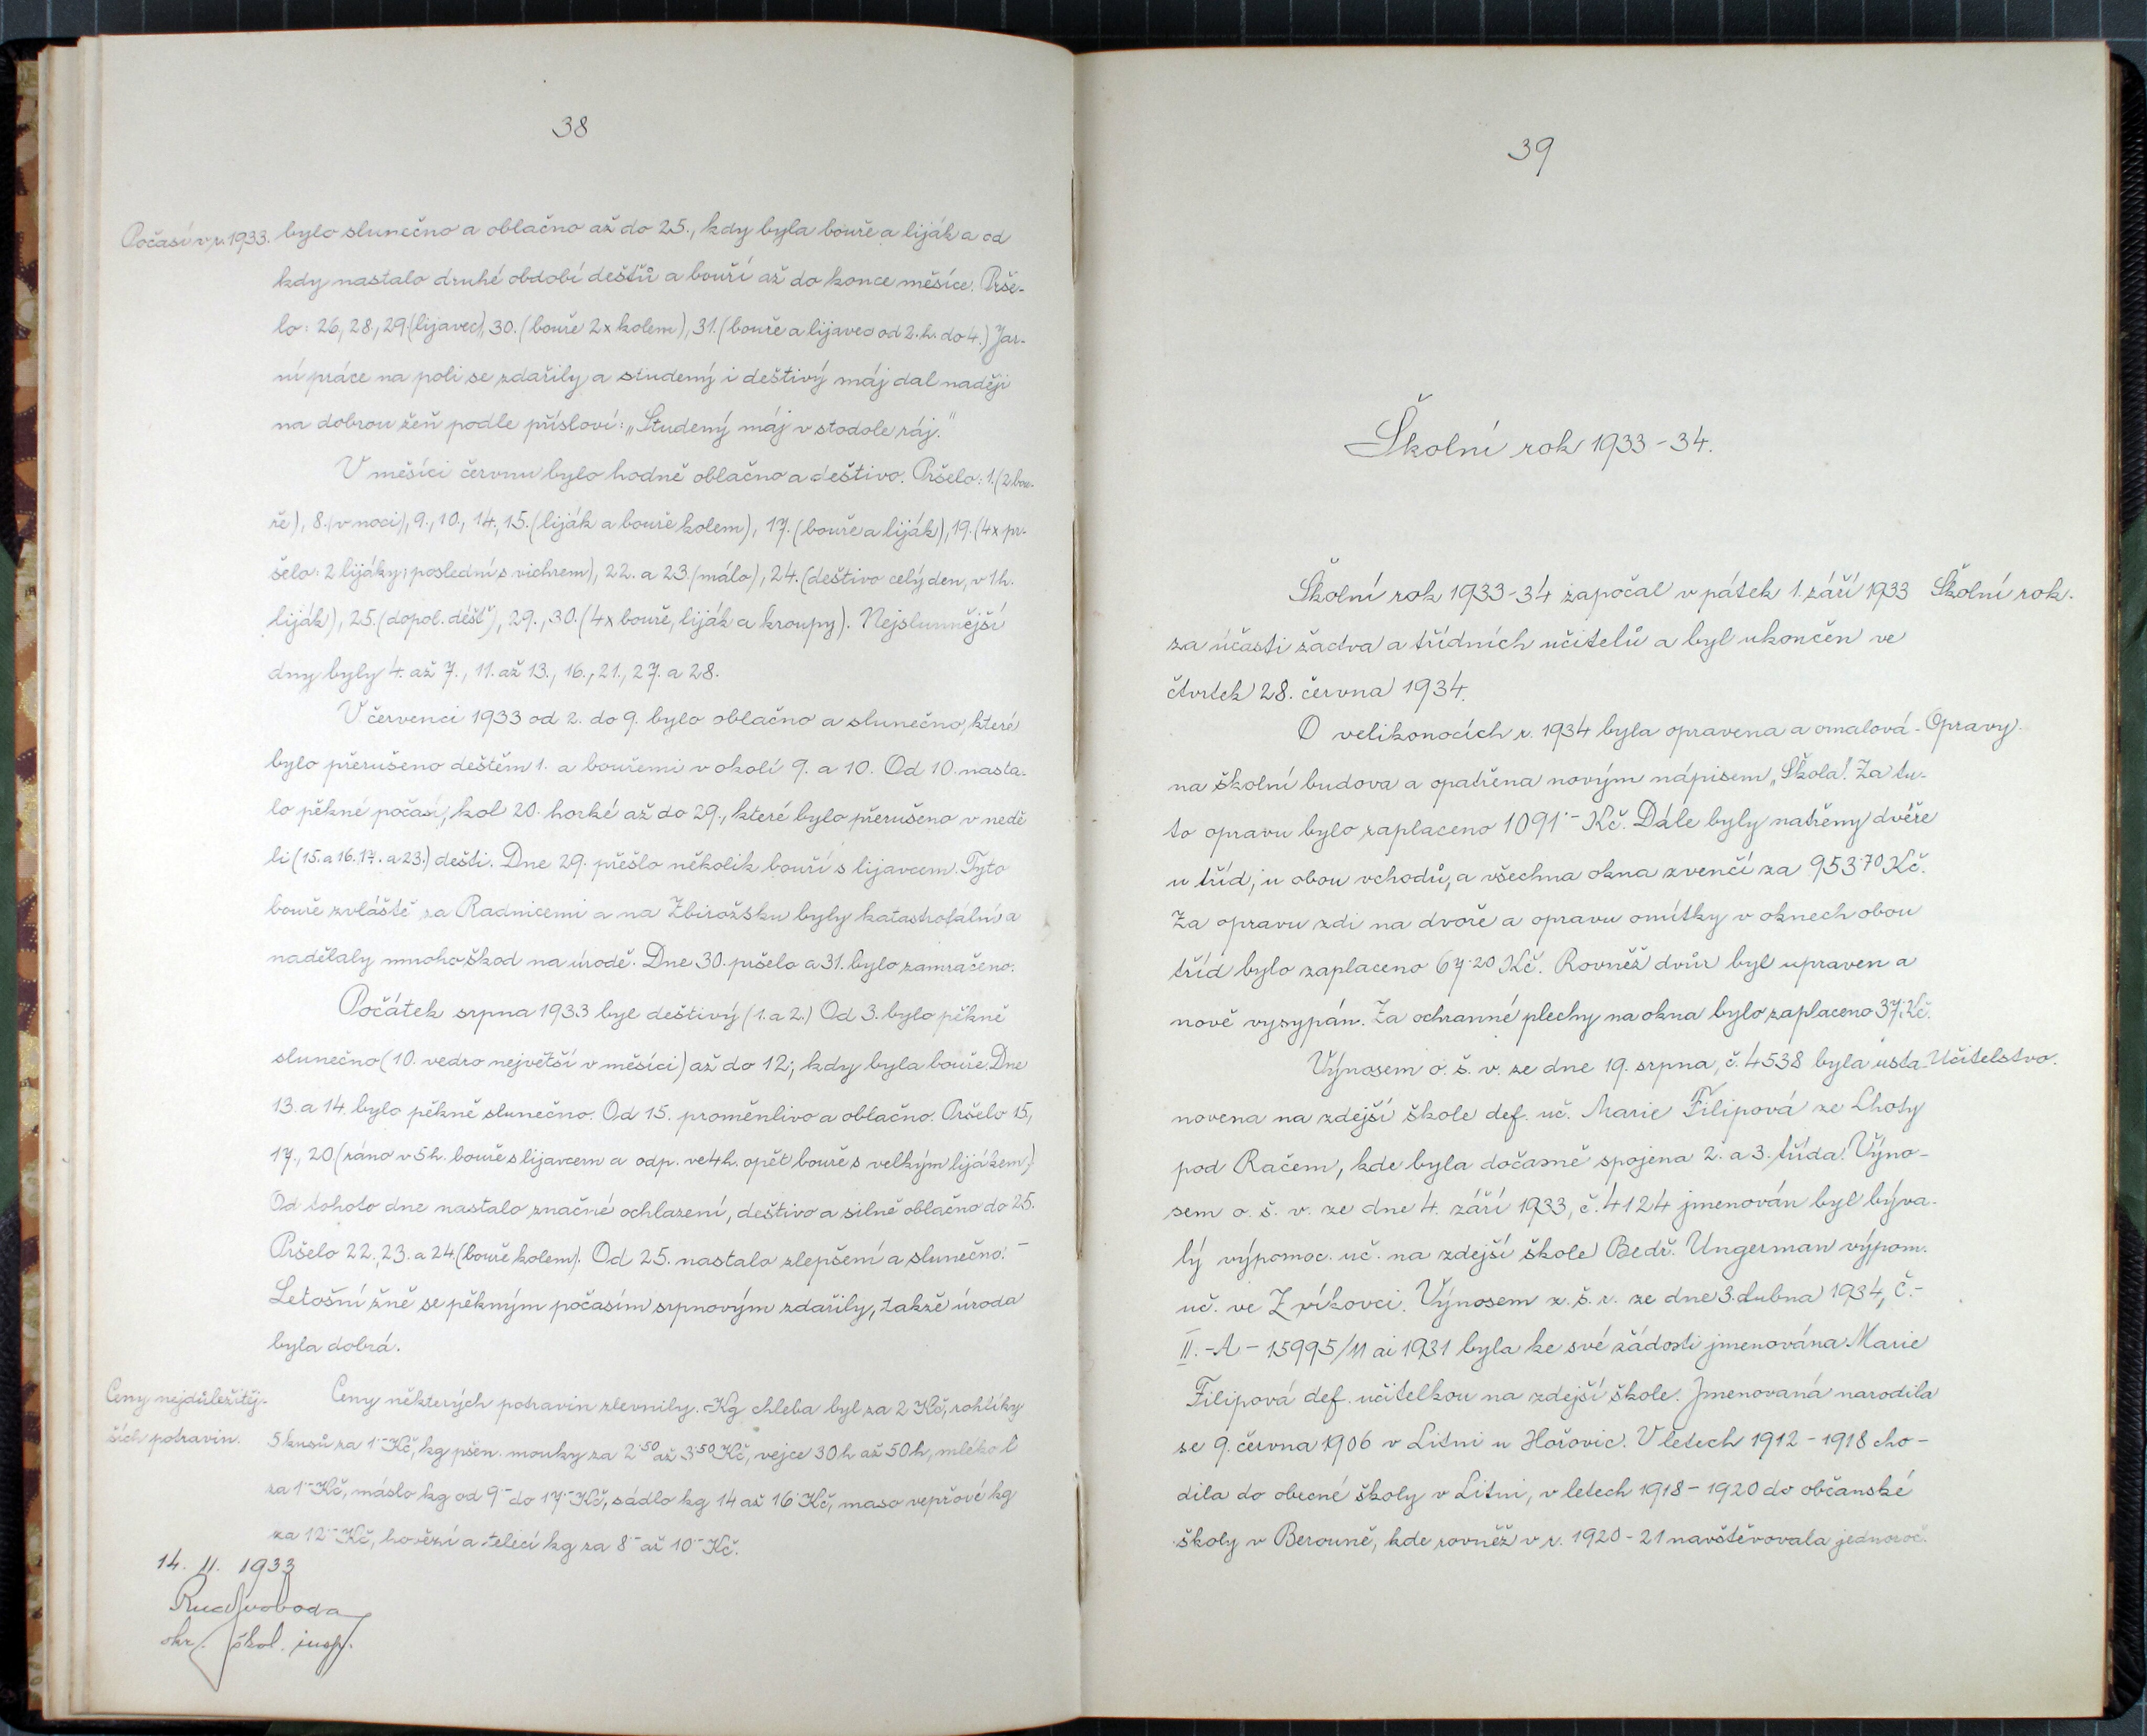 38
Počasí v r. 1933. bylo slunečno a oblačno až do 25., kdy byla bouře a liják a od
kdy nastalo druhé období dešťů a bouří až do konce měsíce. Prše-
lo: 26., 28., 29. (lijavec), 30. (bouře 2x kolem), 31. (bouře a lijavec od 2. h. do 4.) Jar-
ní práce na poli se zdařily a studený i deštivý máj dal naději
na dobrou žeň podle přísloví: „Studený máj v stodole ráj."
V měsíci červnu bylo hodně oblačno a deštivo. Pršelo: 1. (2 bou-
ře), 8. (v noci), 9., 10., 14., 15. (liják a bouře kolem), 17. (bouře a liják), 19. (4x pr-
šelo: 2 lijáky; poslední s vichrem), 22. a 23. (málo), 24. (deštivo celý den, v 1 h.
liják), 25. (dopol. déšť), 29., 30. (4x bouře, liják a kroupy). Nejslunnější
dny byly 4. až 7., 11. až 13., 16., 21., 27. a 28.
V červenci 1933 od 2. do 9. bylo oblačno a slunečno, které
bylo přerušeno deštěm 1. a bouřemi v okolí 9. a 10. Od 10. nasta-
lo pěkné počasí, kol 20. horké až do 29., které bylo přerušeno v nedě
li (15. a 16. 17. a 23.) dešti. Dne 29. přešlo několik bouří s lijavcem. Tyto
bouře zvláště za Radnicemi a na Zbirožsku byly katastrofální a
nadělaly mnoho škod na úrodě. Dne 30. pršelo a 31. bylo zamračeno.
Počátek srpna 1933 byl deštivý (1. a 2.) Od 3. bylo pěkně
slunečno (10. vedro největší v měsíci) až do 12., kdy byla bouře. Dne
13. a 14. bylo pěkně slunečno. Od 15. proměnlivo a oblačno. Pršelo 15.,
17., 20. (ráno v 5 h. bouře s lijavcem a odp. ve 4 h. opět bouře s velkým lijákem.)
Od tohoto dne nastalo značné ochlazení, deštivo a silně oblačno do 25.
Pršelo 22., 23. a 24. (bouře kolem). Od 25. nastalo zlepšení a slunečno. –
Letošní žně se pěkným počasím srpnovým zdařily, takže úroda
byla dobrá.
Ceny nejdůležitěj- Ceny některých potravin zlevnily. Kg chleba byl za 2 Kč, rohlíky
ších potravin. 5 kusů za 1·– Kč, kg pšen. mouky za 2·50 až 3·50 Kč, vejce 30 h až 50 h, mléko l
za 1·– Kč, máslo kg od 9·– do 17·– Kč, sádlo kg 14 až 16 Kč, maso vepřové kg
za 12·– Kč, hovězí a telecí kg za 8·– až 10·– Kč.
14. 11. 1933
Rud Svoboda
okr. škol. insp.
39
Školní rok 1933–34.
Školní rok 1933–34 započal v pátek 1. září 1933 Školní rok.
za účasti žactva a třídních učitelů a byl ukončen ve
čtvrtek 28. června 1934.
O velikonocích r. 1934 byla opravena a omalová- Opravy.
na školní budova a opatřena novým nápisem „Škola". Za tu-
to opravu bylo zaplaceno 1091·– Kč. Dále byly natřeny dvéře
u tříd, u obou vchodů, a všechna okna zvenčí za 953·70 Kč.
Za opravu zdi na dvoře a opravu omítky v oknech obou
tříd bylo zaplaceno 67·20 Kč. Rovněž dvůr byl upraven a
nově vysypán. Za ochranné plechy na okna bylo zaplaceno 37·– Kč.
Výnosem o. š. v. ze dne 19. srpna, č. 4538 byla usta- Učitelstvo.
novena na zdejší škole def. uč. Marie Filipová ze Lhoty
pod Račem, kde byla dočasně spojena 2. a 3. třída. Výno-
sem o. š. v. ze dne 4. září 1933, č. 4124 jmenován byl býva-
lý výpomoc. uč. na zdejší škole Bedř. Ungerman výpom.
uč. ve Zvíkovci. Výnosem z. š. r. ze dne 3. dubna 1934, č.–
II.–A– 15995/11 ai 1931 byla ke své žádosti jmenována Marie
Filipová def. učitelkou na zdejší škole. Jmenovaná narodila
se 9. června 1906 v Litni u Hořovic. V letech 1912–1918 cho-
dila do obecné školy v Litni, v letech 1918–1920 do občanské
školy v Berouně, kde rovněž v r. 1920–21 navštěvovala jednoroč.